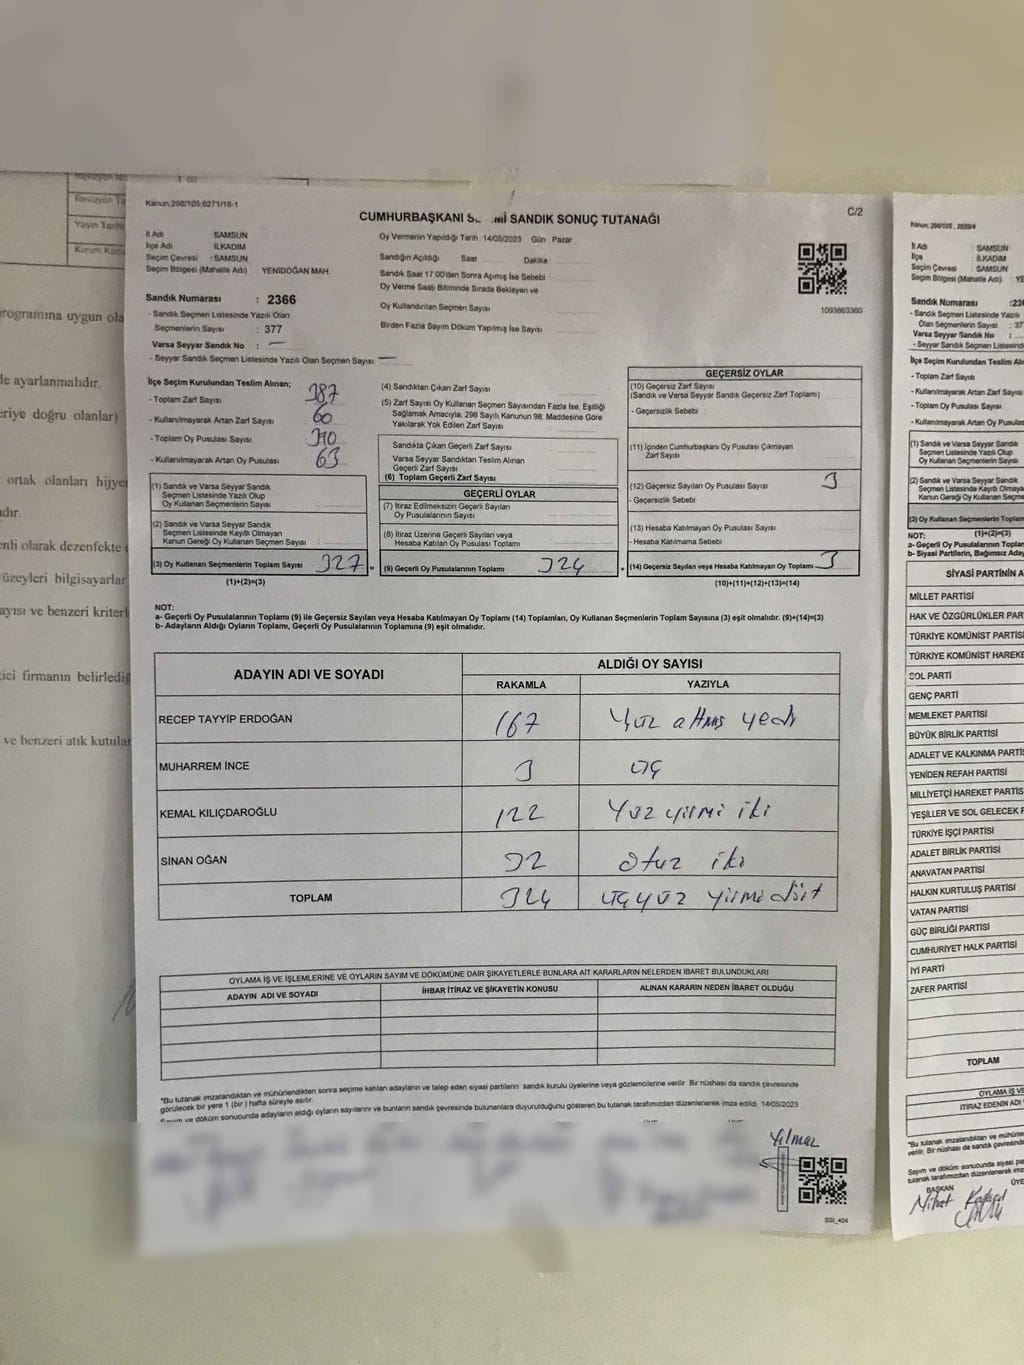 Revizyon No
Revizyon Ta
Yayın Tarihi
Kurum Kodu
programına uygun ola
le ayarlanmalıdır.
eriye doğru olanlar)
ortak olanları hijye
dır.
enli olarak dezenfekte
üzeyleri bilgisayarlar
ayısı ve benzeri kriterl
ici firmanın belirlediğ
ve benzeri atık kutular
Kanun,298/105,6271/18-1
C/2
CUMHURBAŞKANI S MI SANDIK SONUÇ TUTANAĞI
İl Adı : SAMSUN
İlçe Adı : İLKADIM
Seçim Çevresi : SAMSUN
Seçim Bölgesi (Mahalle Adı) YENİDOĞAN MAH
Sandık Numarası : 2366
- Sandık Seçmen Listesinde Yazılı Olan
Seçmenlerin Sayısı : 377
Varsa Seyyar Sandık No : —
- Seyyar Sandık Seçmen Listesinde Yazılı Olan Seçmen Sayısı: —
Oy Vermenin Yapıldığı Tarih :14/05/2023 Gün : Pazar
Sandığın Açıldığı Saat Dakika :
Sandık Saat 17.00'den Sonra Açımış İse Sebebi
Oy Verme Saati Bitiminde Sırada Bekleyen ve
Oy Kullandırılan Seçmen Sayısı
Birden Fazla Sayım Döküm Yapılmış İse Sayısı
1093863360
İlçe Seçim Kurulundan Teslim Alınan;
- Toplam Zarf Sayısı 387
- Kullanılmayarak Artan Zarf Sayısı 60
- Toplam Oy Pusulası Sayısı 390
- Kullanılmayarak Artan Oy Pusulası 63
(1) Sandık ve Varsa Seyyar Sandık
Seçmen Listesinde Yazılı Olup
Oy Kullanan Seçmenlerin Sayısı
(2) Sandık ve Varsa Seyyar Sandık
Seçmen Listesinde Kayıtlı Olmayan
Kanun Gereği Oy Kullanan Seçmen Sayısı
(3) Oy Kullanan Seçmenlerin Toplam Sayısı 327 =
(1)+(2)=(3)
(4) Sandıktan Çıkan Zarf Sayısı
(5) Zarf Sayısı Oy Kullanan Seçmen Sayısından Fazla İse, Eşitliği
Sağlamak Amacıyla, 298 Sayılı Kanunun 98. Maddesine Göre
Yakılarak Yok Edilen Zarf Sayısı
Sandıkta Çıkan Geçerli Zarf Sayısı
Varsa Seyyar Sandıktan Teslim Alınan
Geçerli Zarf Sayısı
(6) Toplam Geçerli Zarf Sayısı
GEÇERLİ OYLAR
(7) İtiraz Edilmeksizin Geçerli Sayılan
Oy Pusulalarının Sayısı
(8) İtiraz Üzerine Geçerli Sayılan veya
Hesaba Katılan Oy Pusulası Toplamı
(9) Geçerli Oy Pusulalarının Toplamı 324 +
GEÇERSİZ OYLAR
(10) Geçersiz Zarf Sayısı
(Sandık ve Varsa Seyyar Sandık Geçersiz Zarf Toplamı)
- Geçersizlik Sebebi
(11) İçinden Cumhurbaşkanı Oy Pusulası Çıkmayan
Zarf Sayısı
(12) Geçersiz Sayılan Oy Pusulası Sayısı 3
- Geçersizlik Sebebi
(13) Hesaba Katılmayan Oy Pusulası Sayısı
- Hesaba Katılmama Sebebi
(14) Geçersiz Sayılan veya Hesaba Katılmayan Oy Toplamı 3
(10)+(11)+(12)+(13)=(14)
NOT:
a- Geçerli Oy Pusulalarının Toplamı (9) ile Geçersiz Sayılan veya Hesaba Katılmayan Oy Toplamı (14) Toplamları, Oy Kullanan Seçmenlerin Toplam Sayısına (3) eşit olmalıdır. (9)+(14)=(3)
b- Adayların Aldığı Oyların Toplamı, Geçerli Oy Pusulalarının Toplamına (9) eşit olmalıdır.
ADAYIN ADI VE SOYADI
ALDIĞI OY SAYISI
RAKAMLA YAZIYLA
RECEP TAYYİP ERDOĞAN 167 Yüz altmış yedi
MUHARREM İNCE 3 üç
KEMAL KILIÇDAROĞLU 122 Yüz yirmi iki
SİNAN OĞAN 32 Otuz iki
TOPLAM 324 üçyüz yirmi dört
OYLAMA İŞ VE İŞLEMLERİNE VE OYLARIN SAYIM VE DÖKÜMÜNE DAİR ŞİKAYETLERLE BUNLARA AİT KARARLARIN NELERDEN İBARET BULUNDUKLARI
ADAYIN ADI VE SOYADI İHBAR İTİRAZ VE ŞİKAYETİN KONUSU ALINAN KARARIN NEDEN İBARET OLDUĞU
*Bu tutanak imzalandıktan ve mühürlendikten sonra seçime katılan adayların ve talep eden siyasi partilerin sandık kurulu üyelerine veya gözlemcilerine verilir. Bir nüshası da sandık çevresinde
görülecek bir yere 1 (bir ) hafta süreyle asılır.
Sayım ve döküm sonucunda adayların aldığı oyların sayılarını ve bunların sandık çevresinde bulunanlara duyurulduğunu gösteren bu tutanak tarafımızdan düzenlenerek imza edildi. 14/05/2023
Yılmaz
SSI_404
Kanun, 298/105 , 2839/4
İl Adı : SAMSUN
İlçe : İLKADIM
Seçim Çevresi : SAMSUN
Seçim Bölgesi (Mahalle Adı) : YE
Sandık Numarası :236
- Sandık Seçmen Listesinde Yazılı
Olan Seçmenlerin Sayısı : 37
Varsa Seyyar Sandık No :
- Seyyar Sandık Seçmen Listesinde
İlçe Seçim Kurulundan Teslim Alı
- Toplam Zarf Sayısı
- Kullanılmayarak Artan Zarf Sayısı
- Toplam Oy Pusulası Sayısı
- Kullanılmayarak Artan Oy Pusulas
(1) Sandık ve Varsa Seyyar Sandık
Seçmen Listesinde Yazılı Olup
Oy Kullanan Seçmenlerin Sayısı
(2) Sandık ve Varsa Seyyar Sandık
Seçmen Listesinde Kayıtlı Olmaya
Kanun Gereği Oy Kullanan Seçme
(3) Oy Kullanan Seçmenlerin Toplam
NOT: (1)+(2)=(3)
a- Geçerli Oy Pusulalarının Toplam
b- Siyasi Partilerin, Bağımsız Aday
SİYASİ PARTİNİN A
MİLLET PARTİSİ
HAK VE ÖZGÜRLÜKLER PAR
TÜRKİYE KOMÜNİST PARTİSİ
TÜRKİYE KOMÜNİST HAREKE
SOL PARTİ
GENÇ PARTİ
MEMLEKET PARTİSİ
BÜYÜK BİRLİK PARTİSİ
ADALET VE KALKINMA PARTİS
YENİDEN REFAH PARTİSİ
MİLLİYETÇİ HAREKET PARTİS
YEŞİLLER VE SOL GELECEK P
TÜRKİYE İŞÇİ PARTİSİ
ADALET BİRLİK PARTİSİ
ANAVATAN PARTİSİ
HALKIN KURTULUŞ PARTİSİ
VATAN PARTİSİ
GÜÇ BİRLİĞİ PARTİSİ
CUMHURİYET HALK PARTİSİ
İYİ PARTİ
ZAFER PARTİSİ
TOPLAM
OYLAMA İŞ VE
İTİRAZ EDENİN ADI
*Bu tutanak imzalandıktan ve mühürle
verilir. Bir nüshası da sandık çevresinde
Sayım ve döküm sonucunda siyasi pa
tutanak tarafımızdan düzenlenerek imza
BAŞKAN ÜYE
Nihat